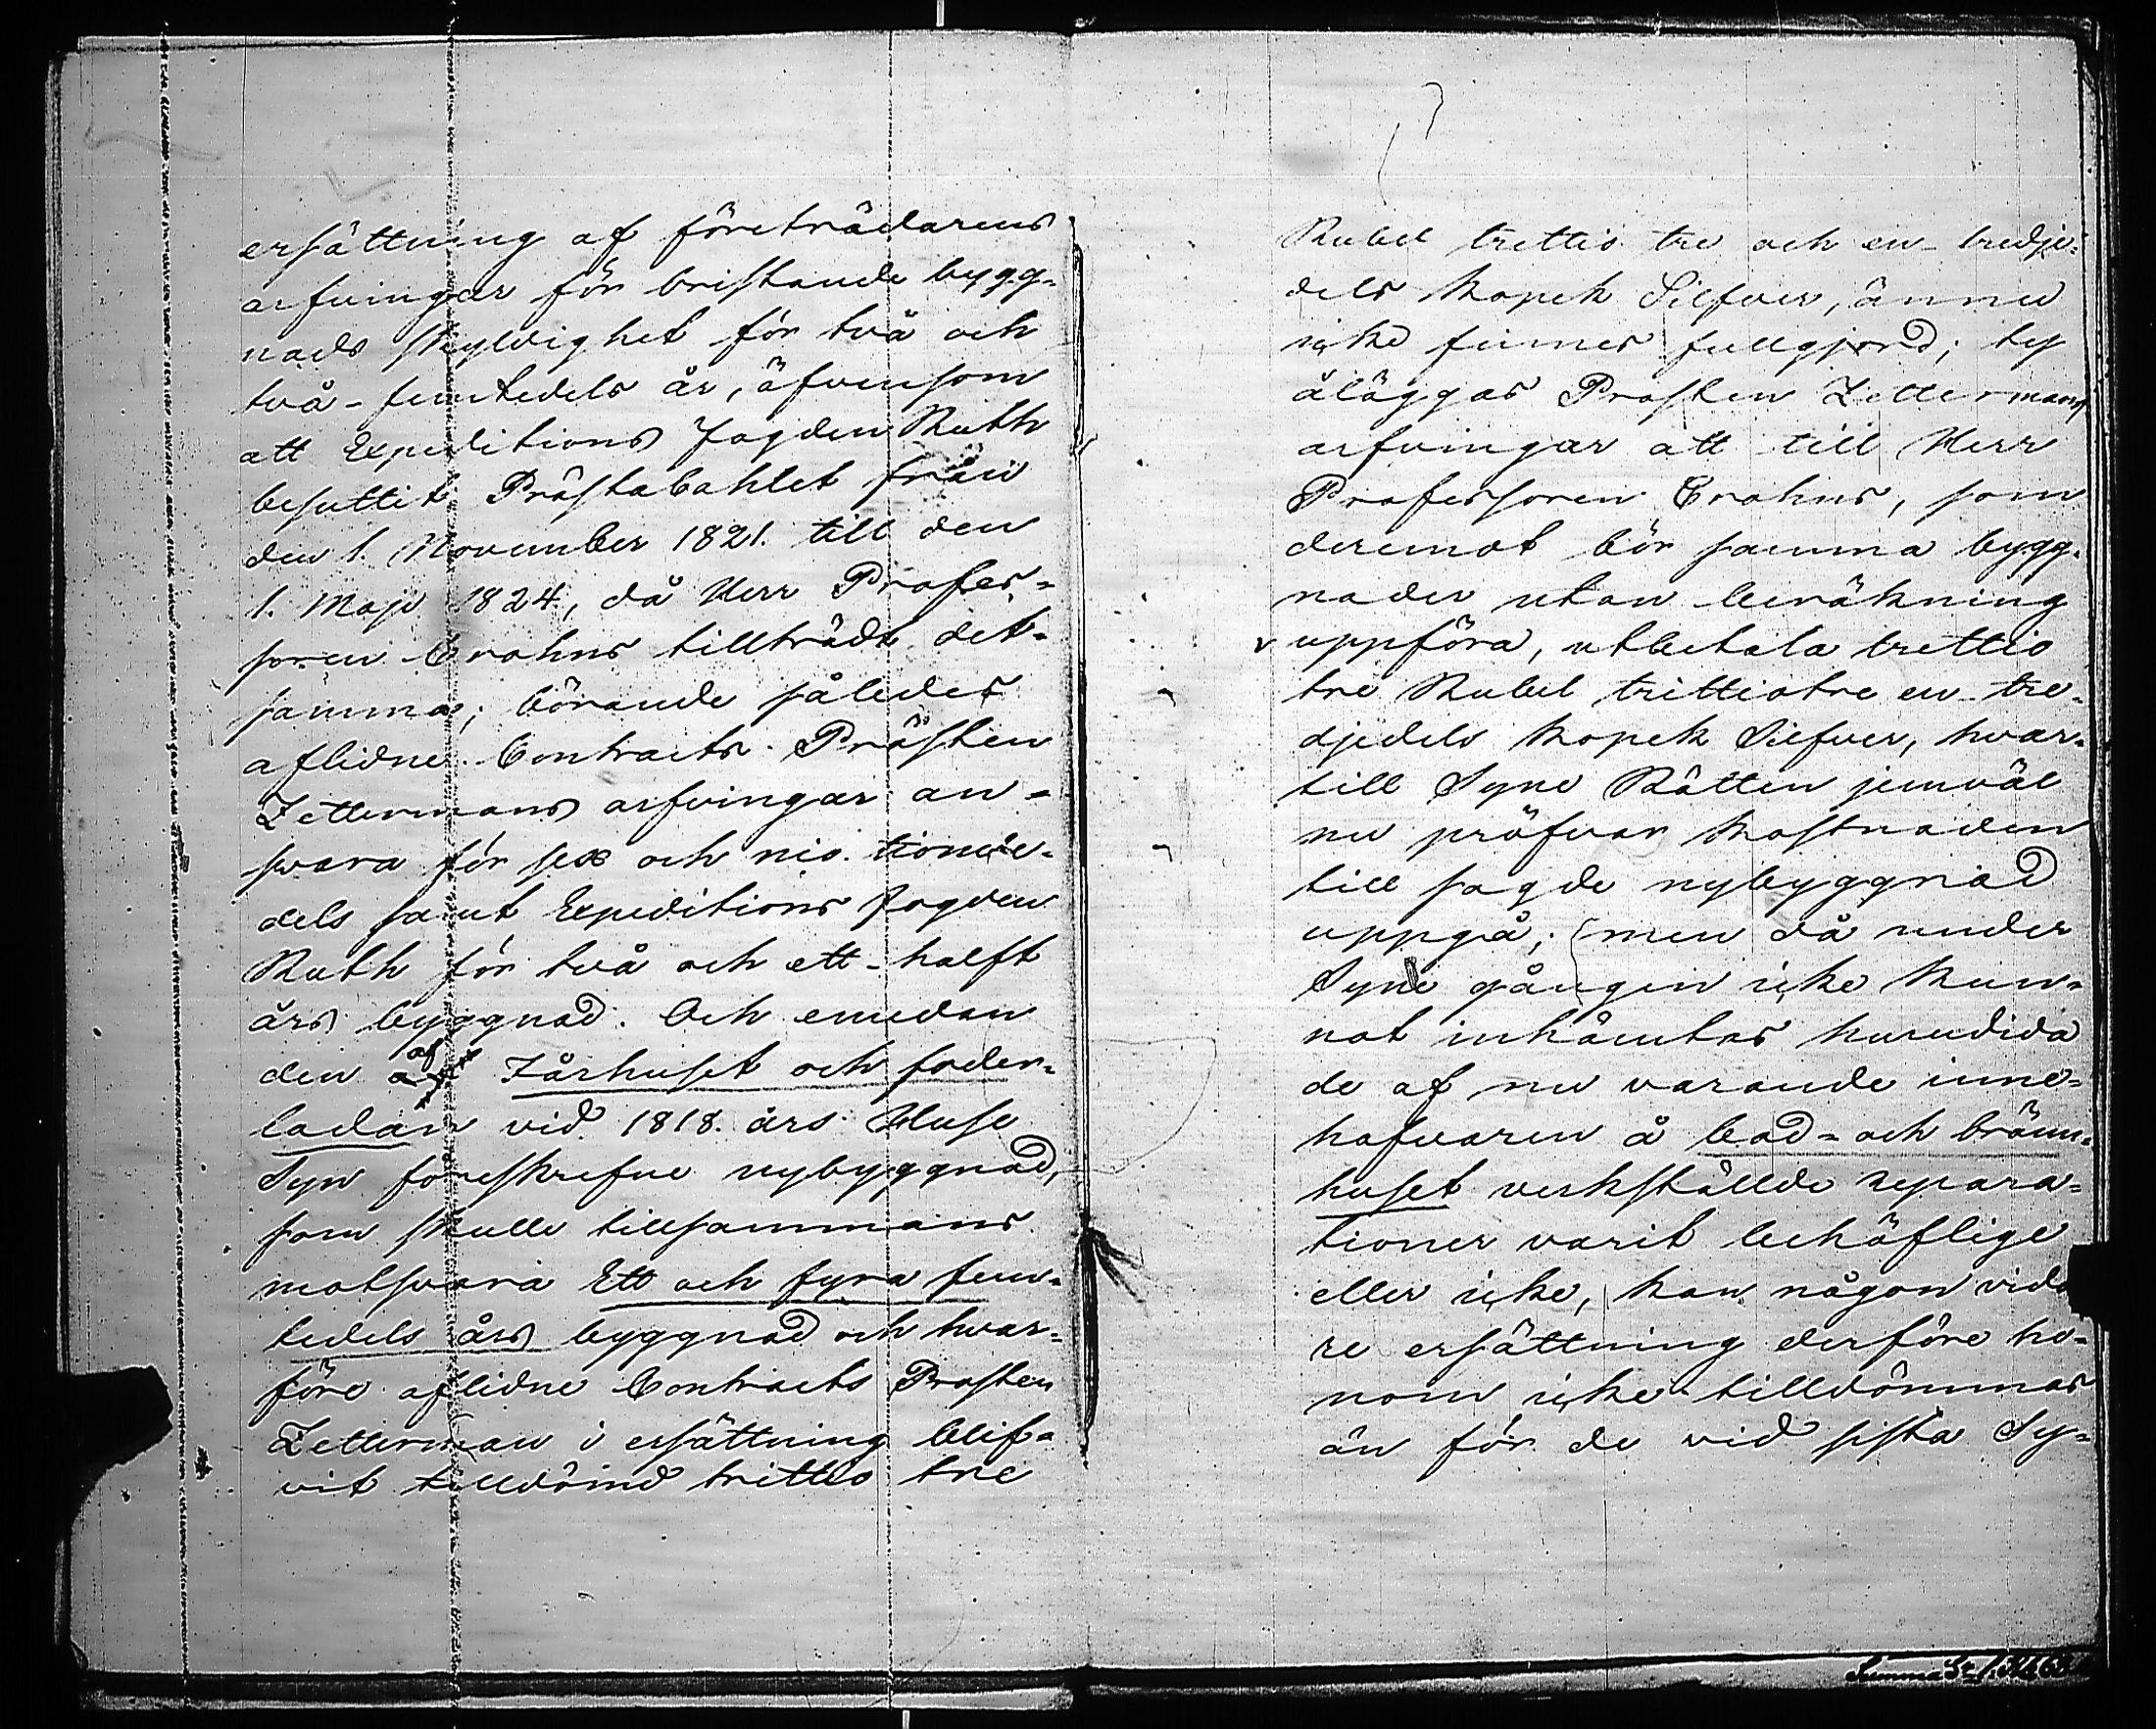 ersättning af företrädarens
arfvingar för bristande bygg-
nads skyldighet för två och
två-femtedels år, äfvensom
att Expeditions Fogden Ruth
besuttit Prästabohlet från
den 1. November 1821. till den
1. Maji 1824, då Herr Profes-
soren Crohns tillträdt det-
samma; börande således
aflidne Contracts-Prosten
Zettermans arfvingar an-
svara för sex och nio-tionde-
dels samt Expeditions Fogden
Ruth för två och ett-halft
års byggnad. Och emedan
den af Fårhuset och foder-
ladan vid 1818. års Huse
Syn föreskrefne nybyggnad,
som skulle tillsammans
motsvara Ett och fyra fem-
tedels års byggnad och hvar-
före aflidne Contracts Prosten
Zetterman i ersättning blif-
vit tilldömd trettio tre
Rubel trettio tre och en-tredje-
dels Kopek Silfver, ännu
icke finnes fullgjord; ty
åläggas Prosten Zettermans
arfvingar att till Herr
Professoren Crohns, som
deremot bör samma bygg-
nader utan beräkning
uppföra, utbetala trettio
tre Rubel trettiotre en-tre-
djedels Kopek Silfver, hvar-
till Syne Rätten jemväl
nu pröfvar kostnaden
till sagde nybyggnad
uppgå; men då under
Syne gången icke kun-
nat inhämtas huruvida
de af nu varande inne-
hafvaren å bad- och bränn-
huset verkställde repara-
tioner varit behöflige
eller icke, kan någon vida
re ersättning derföre ho-
nom icke tilldömmas
än för de vid sista Sy-